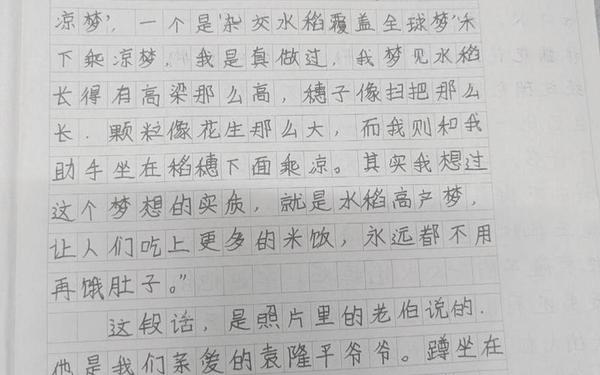 凉梦’，一个是‘杂交水稻覆盖全球梦’禾
下乘凉梦，我是真做过，我梦见水稻
长得有高梁那么高，穗子像扫把那么
长．颗粒像花生那么大，而我则和我
助手坐在稻穗下面乘凉。其实我想过
这个梦想的实质，就是水稻高产梦，
让人们吃上更多的米饭，永远都不用
再饿肚子。”
这段话，是照片里的老伯说的．
他是我们亲爱的袁隆平爷爷。蹲坐在